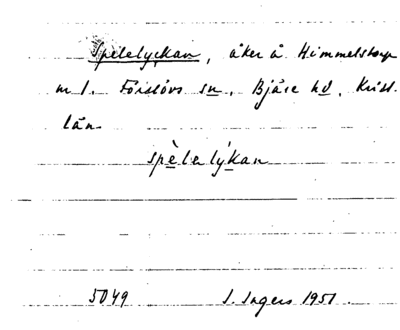 Spelelyckan, åker å Himmelstorp
nr 1. Förslövs sn, Bjäre hd, Krist.
län.
spèlelýkan
5049 I. Ingers 1951.